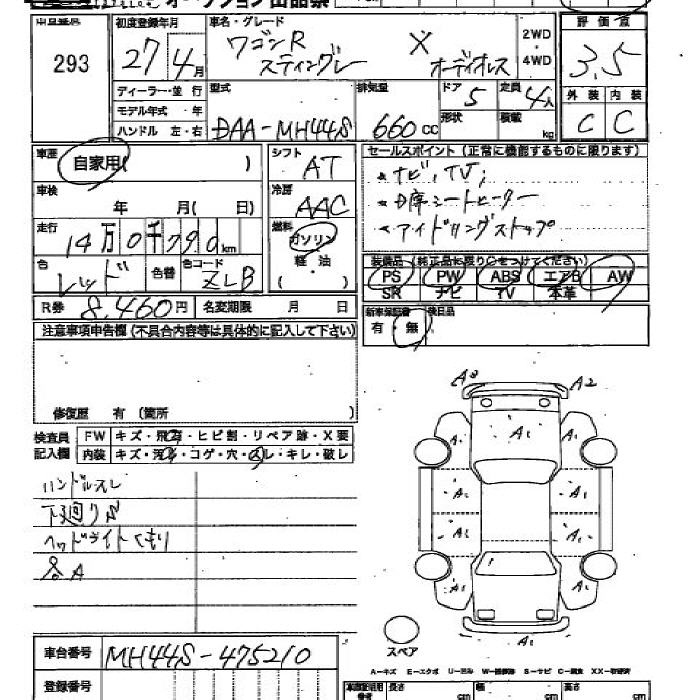 オークション出品票
293
初度登録年月
27年4月
車名・グレード
ワゴンR X
スティングレー オーディオレス
2WD
・
4WD
評価点
3.5
ディーラー・並行
モデル年式・年
ハンドル 左・右
型式
DAA-MH44S
排気量
660CC
ドア 5
形状
定員 4人
積載 kg
外装 内装
C C
車歴 自家用( )
車検 年 月( 日)
走行 14万0千790km
色 レッド 色番 色コード ZLB
シフト AT
冷房 AAC
燃料 ガソリン
軽・油
セールスポイント(正常に機能するものに限ります)
ナビ,TV;
席シートヒーター
アイドリングストップ
装備品(純正品に限り○をつけてください)
PS PW ABS エアB AW
SR ナビ TV 本革
R券 8,460円 名変期限 月 日
新車保証書 後日品
有・無
注意事項申告欄(不具合内容等は具体的に記入して下さい)
修復歴 有(箇所 )
検査員
記入欄
FW キズ・飛石・ヒビ割・リペア跡・X要
内装 キズ・汚れ・コゲ・穴・スレ・キレ・破レ
ハンドルスレ
下廻りS
ヘッドライトくもり
各A
A2
A1
A1
A1
A1
A1
A1
A1
A1
A1
A1
A1
スペア
車台番号 MH44S-475210
登録番号
A-キズ E-エクボ U-凹み S-サビ
長さ cm 幅 cm cm